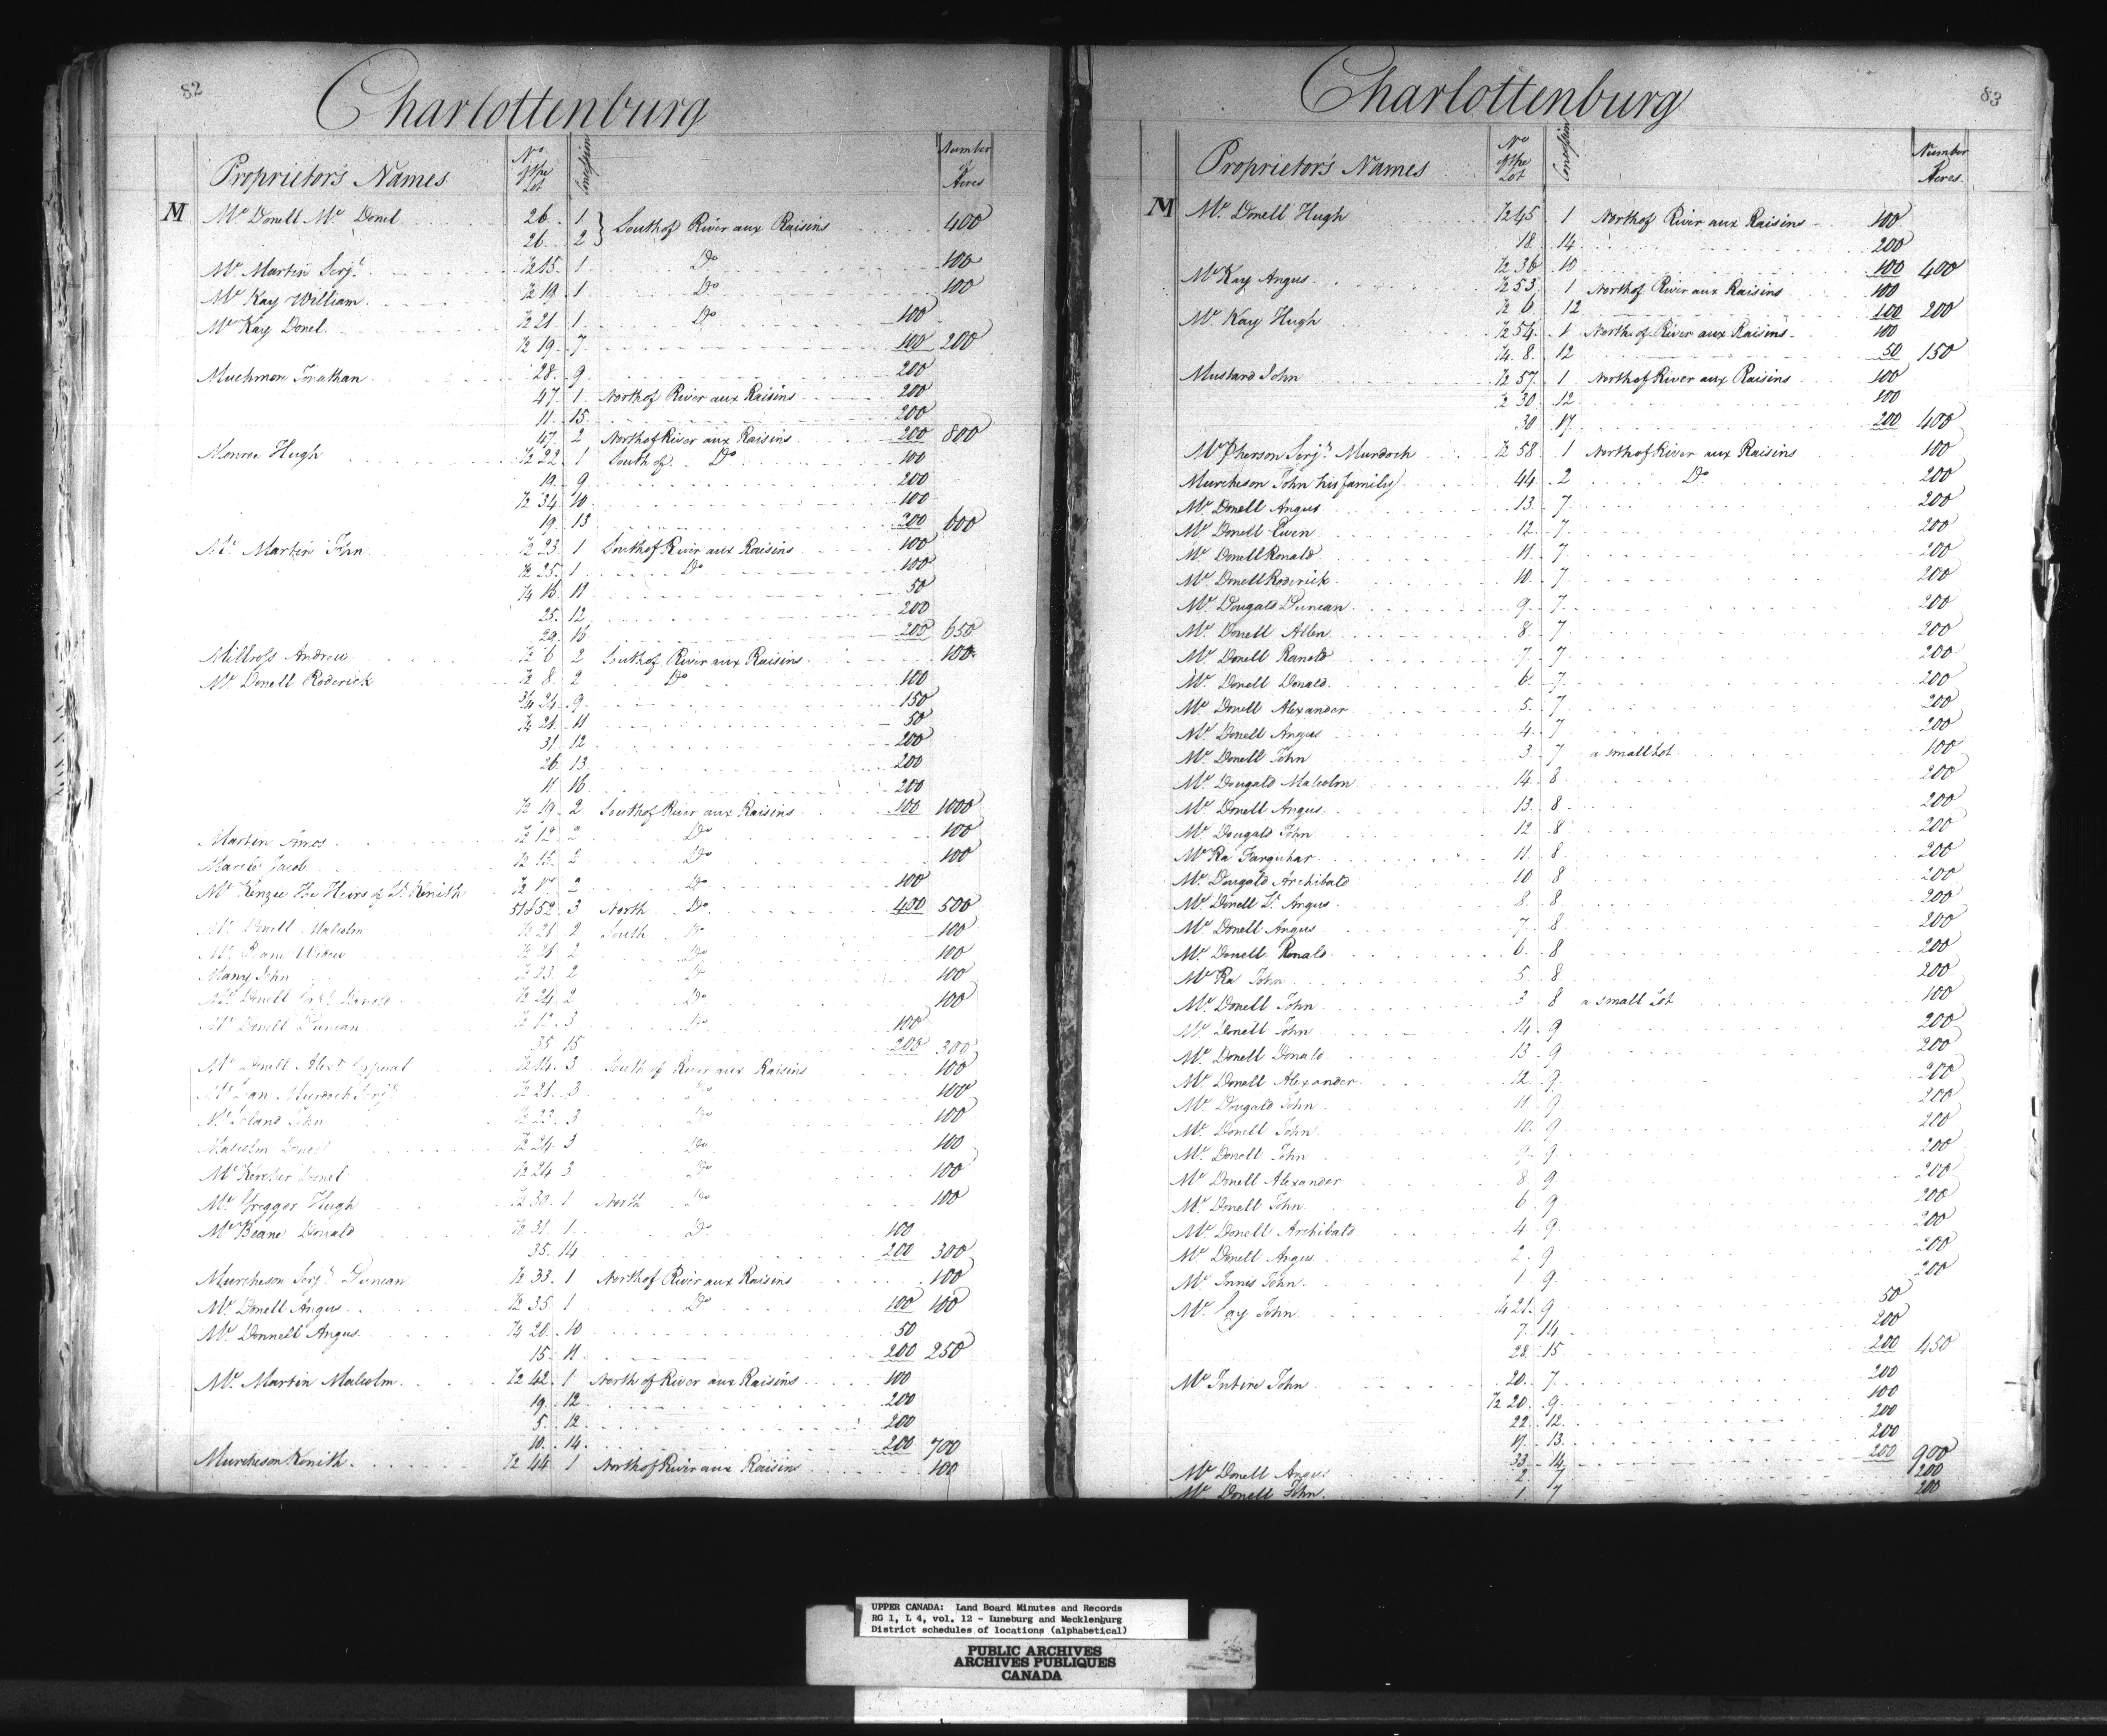 82
Charlottenburg
Proprietor's Names No of the Lot Concession Number of Acres
M Mc Donell Mc Donel 26 1 } South of River aux Raisins 400
26 2
Mc Martin Serjt 1/2 15 1 Do 100
Mc Kay William 1/2 19 1 Do 100
Mc Kay Donel 1/2 21 1 Do 100
1/2 19 7 100 200
Muchmore Jonathan 28 9 200
47 1 North of River aux Raisins 200
11 15 200
47 2 North of River aux Raisins 200 800
Monroe Hugh 1/2 22 1 South of Do 100
19 9 200
1/2 34 10 100
19 13 200 600
Mc Martin John 1/2 23 1 South of River aux Raisins 100
1/2 25 1 Do 100
1/4 16 11 50
25 12 200
29 16 200 650
Millross Andrew 1/2 6 2 South of River aux Raisins 100
Mc Donell Roderick 1/2 8 2 Do 100
3/4 24 9 150
1/4 21 11 50
31 12 200
26 13 200
11 16 200
1/2 19 2 South of River aux Raisins 100 1000
Martin Amos 1/2 12 2 Do 100
Jacob 1/2 15 2 Do 100
Mc Kenzie The Heirs of Lt Kenith 1/2 2 Do 100
51 & 52 3 North Do 400 500
Mc Donell Malcolm 1/2 21 2 South Do 100
Widow 1/2 21 2 Do 100
Many John 1/2 23 2 Do 100
Mc Donell 1/2 24 2 Do 100
Mc Donell Duncan 1/2 12 3 Do 100
35 15 200 300
Mc Donell Alexr 1/2 14 3 South of River aux Raisins 100
Murdoch Serjt 1/2 21 3 Do 100
John 1/2 23 3 Do 100
Malcolm 1/2 24 3 Do 100
Mc Kercher Donel 1/2 24 3 Do 100
Mc Gregger Hugh 1/2 30 1 North Do 100
Mc Beane Donald 1/2 31 1 Do 100
35 14 200 300
Murcheson Serjt Duncan 1/2 33 1 North of River aux Raisins 100
Mc Donell Angus 1/2 35 1 Do 100 100
Mc Donnell Angus 1/4 20 10 50
15 11 200 250
Mc Martin Malcolm 1/2 42 1 North of River aux Raisins 100
19 12 200
5 12 200
10 14 200 700
Murcheson Kenith 1/2 44 1 North of River aux Raisins 100
83
Charlottenburg
Proprietor's Names No of the Lot Concession Number Acres
M Mc Donell Hugh 1/2 45 1 North of River aux Raisins 100
18 14 200
1/2 36 10 100 400
Mc Kay Angus 1/2 53 1 North of River aux Raisins 100
1/2 6 12 100 200
Mc Kay Hugh 1/2 54 1 North of River aux Raisins 100
1/4 8 12 50 150
Mustard John 1/2 57 1 North of River aux Raisins 100
1/2 30 12 100
30 17 200 400
Mc Pherson Serjt Murdoch 1/2 58 1 North of River aux Raisins 100
Murcheson John his family 44 2 Do 200
Mc Donell Angus 13 7 200
Mc Donell Ewen 12 7 200
Mc Donell Ronald 11 7 200
Mc Donell Roderick 10 7 200
Mc Dougald Duncan 9 7 200
Mc Donell Allen 8 7 200
Mc Donell Ranald 7 7 200
Mc Donell Donald 6 7 200
Mc Donell Alexander 5 7 200
Mc Donell Angus 4 7 200
Mc Donell John 3 7 a small Lot 100
Mc Dougald Malcolm 14 8 200
Mc Donell Angus 13 8 200
Mc Dougald John 12 8 200
Mc Ra Farquhar 11 8 200
Mc Dougald Archibald 10 8 200
Mc Donell Lt Angus 8 8 200
Mc Donell Angus 7 8 200
Mc Donell Ronald 6 8 200
Mc Ra John 5 8 200
Mc Donell John 3 8 a small Lot 100
Mc Donell John 14 9 200
Mc Donell Donald 13 9 200
Mc Donell Alexander 12 9 200
Mc Dougald John 11 9 200
Mc Donell John 10 9 200
Mc Donell John 9 9 200
Mc Donell Alexander 8 9 200
Mc Donell John 6 9 200
Mc Donell Archibald 4 9 200
Mc Donell Angus 2 9 200
Mc Innis John 1 9 200
Mc John 1/4 21 9 50
7 14 200
28 15 200 450
Mc Intire John 20 7 200
1/2 20 9 100
22 12 200
17 13 200
33 14 200 900
Mc Donell Angus 2 7 200
Mc Donell John 1 7 200
UPPER CANADA: Land Board Minutes and Records
RG 1, L 4, vol. 12 - Luneburg and Mecklenburg
District schedules of locations (alphabetical)
PUBLIC ARCHIVES
ARCHIVES PUBLIQUES
CANADA